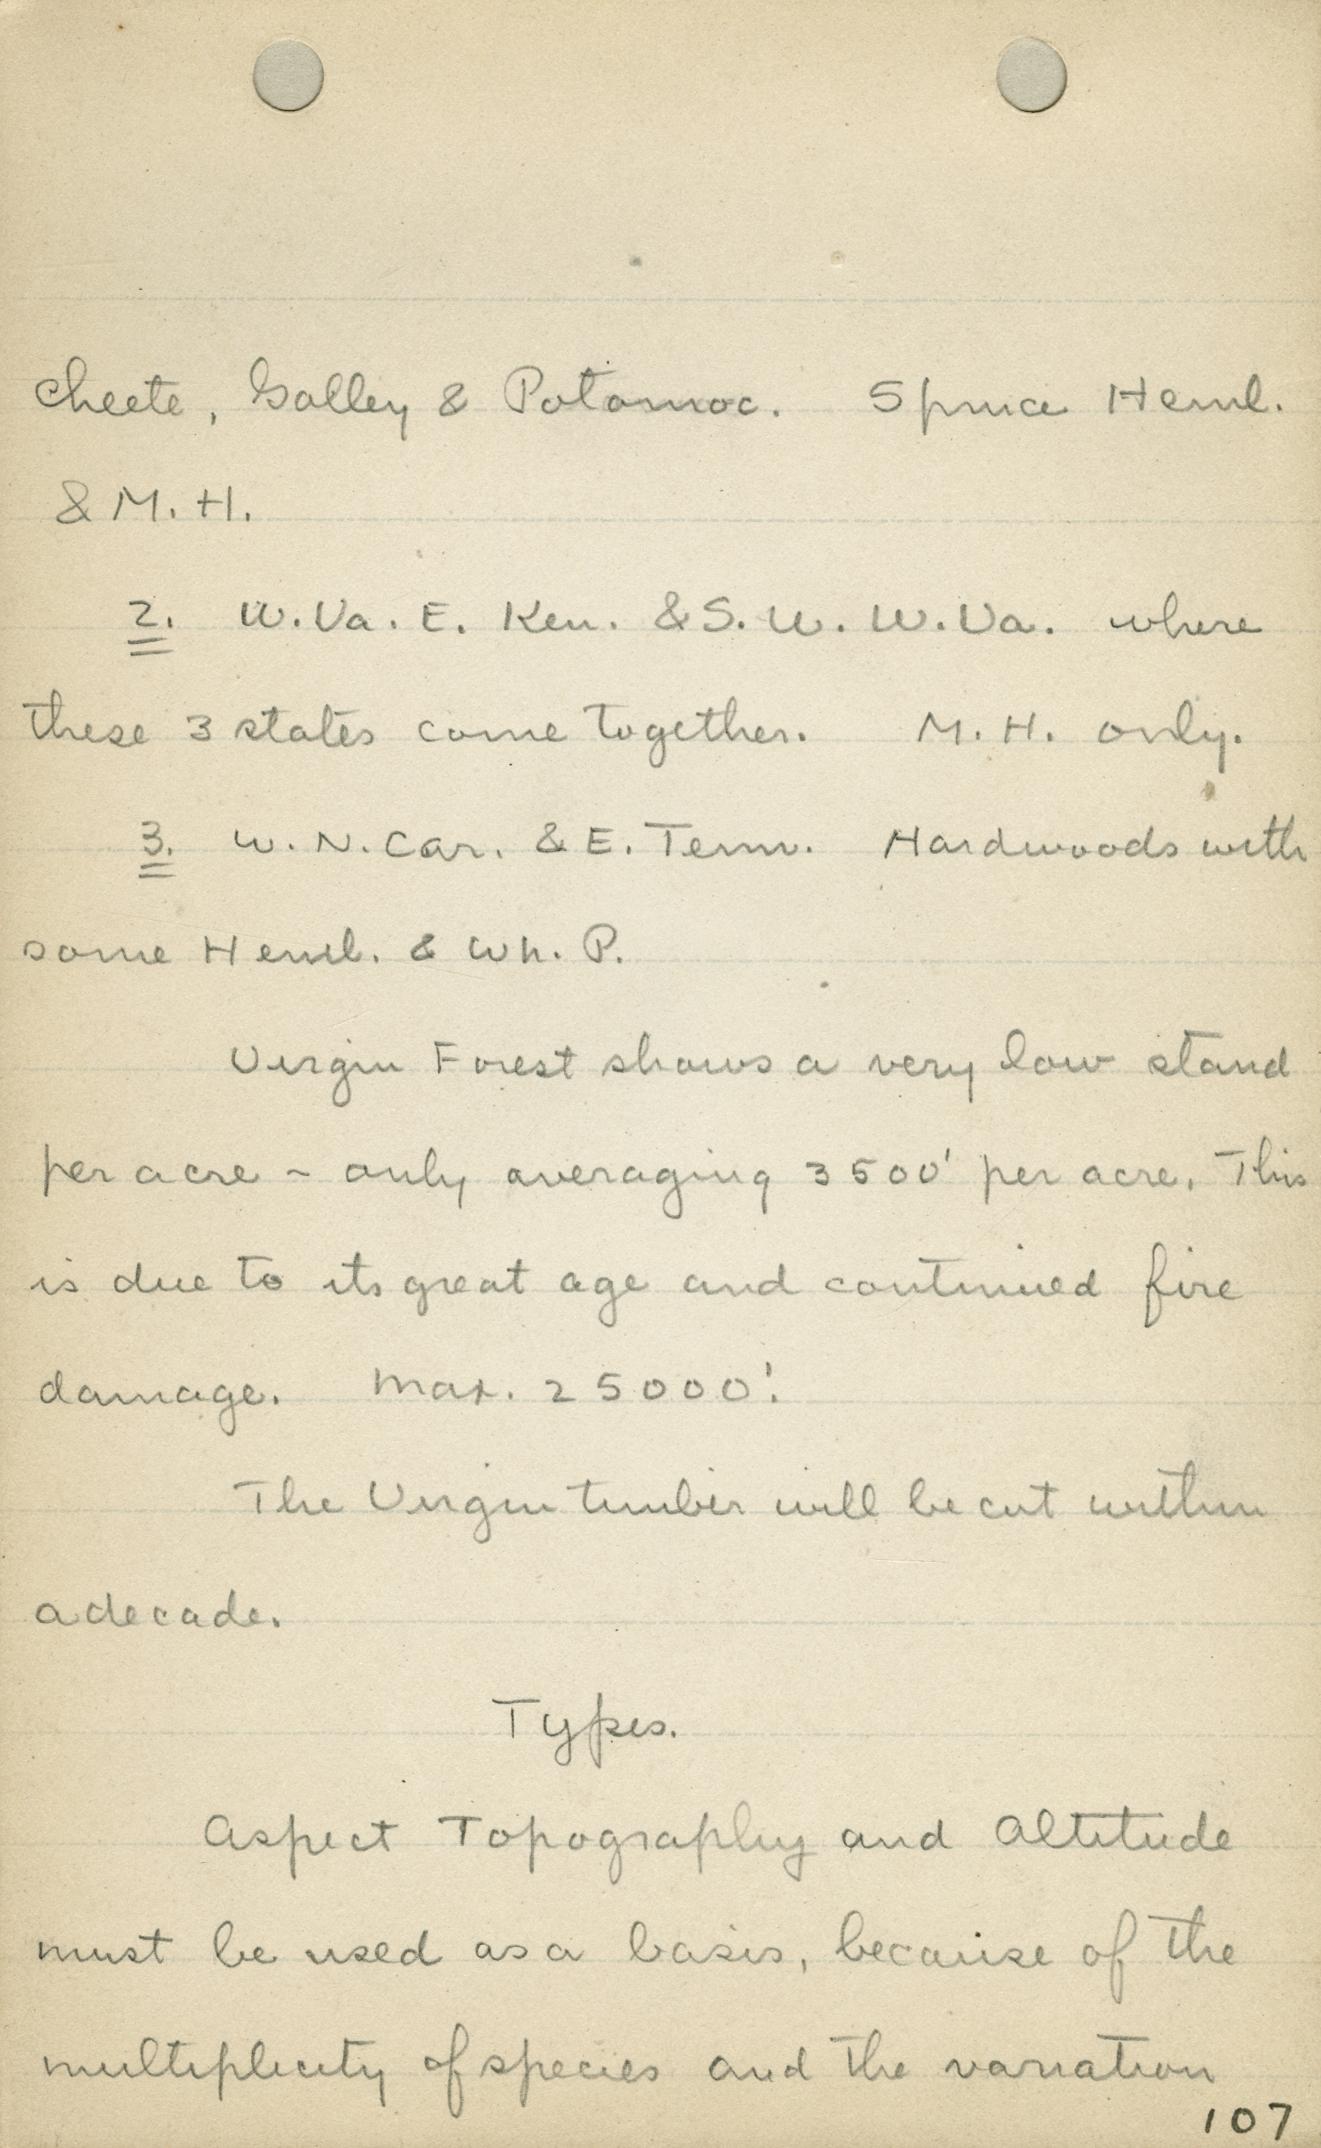 cheete, Golley & Potomoc. Spruce Heml.
& M. H.
2. W. Va. E. Ken. & S. W. W. Va. where
these 3 states come together. M. H. only.
3. W. N. Car. & E. Tenn. Hardwoods with
some Heml. & Wh. P.
Virgin Forest shows a very low stand
per acre - only averaging 3500' per acre. This
is due to its great age and continued fire
damage. Max. 25000'.
The Virgin timber will be cut within
a decade.
Types.
Aspect Topography and Altitude
must be used as a basis, because of the
multiplicity of species and the variation
107